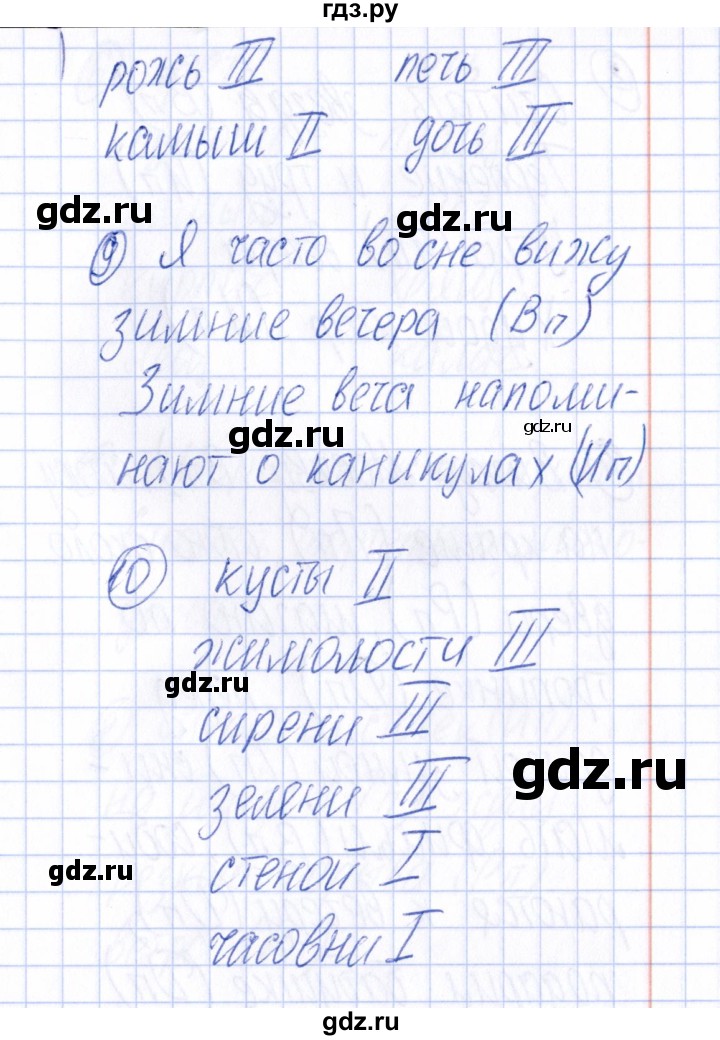 гдз.ру
рожь III печь III
камыш II дочь III
gdz.ru gdz.ru
9 Я часто во сне вижу
зимние вечера (Вп)
Зимние веча напоми-
gdz.ru gdz.ru
нают о каникулах (Ип)
10 кусты II
жимолости III
gdz.ru
сирени III
gdz.ru
зелени III
gdz.ru
стеной I
часовни I
gdz.ru